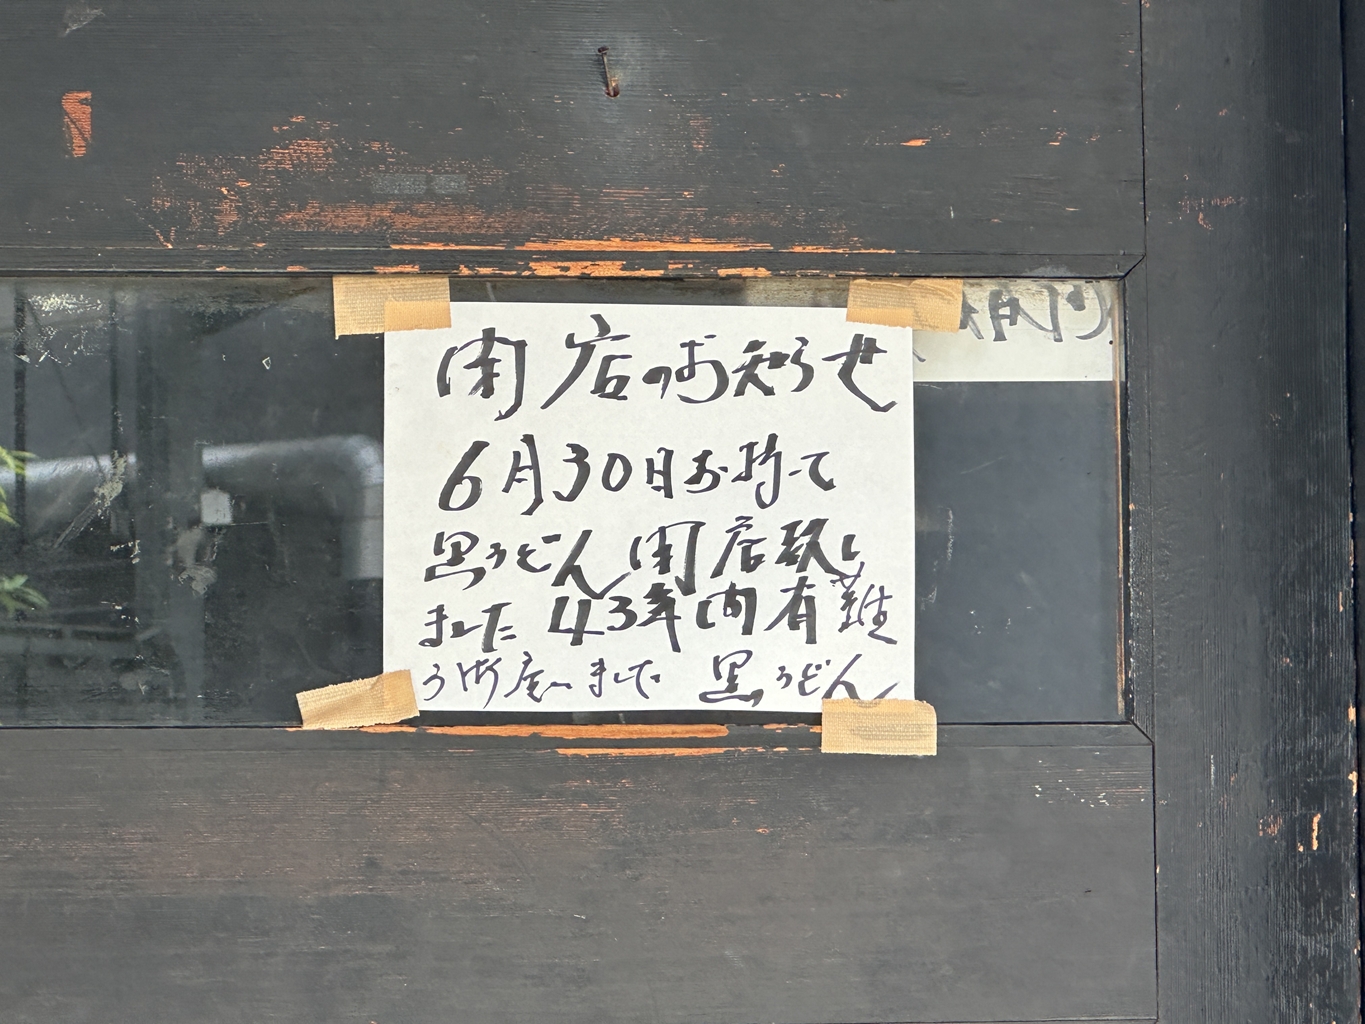 閉店のお知らせ
6月30日お持って
黒うどん閉店致し
ました 43年間有難
う御座いました 黒うどん